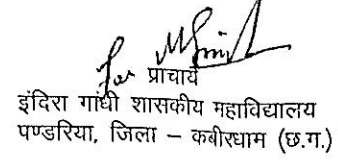 for
प्राचार्य
इंदिरा गांधी शासकीय महाविद्यालय
पण्डरिया, जिला – कबीरधाम (छ.ग.)